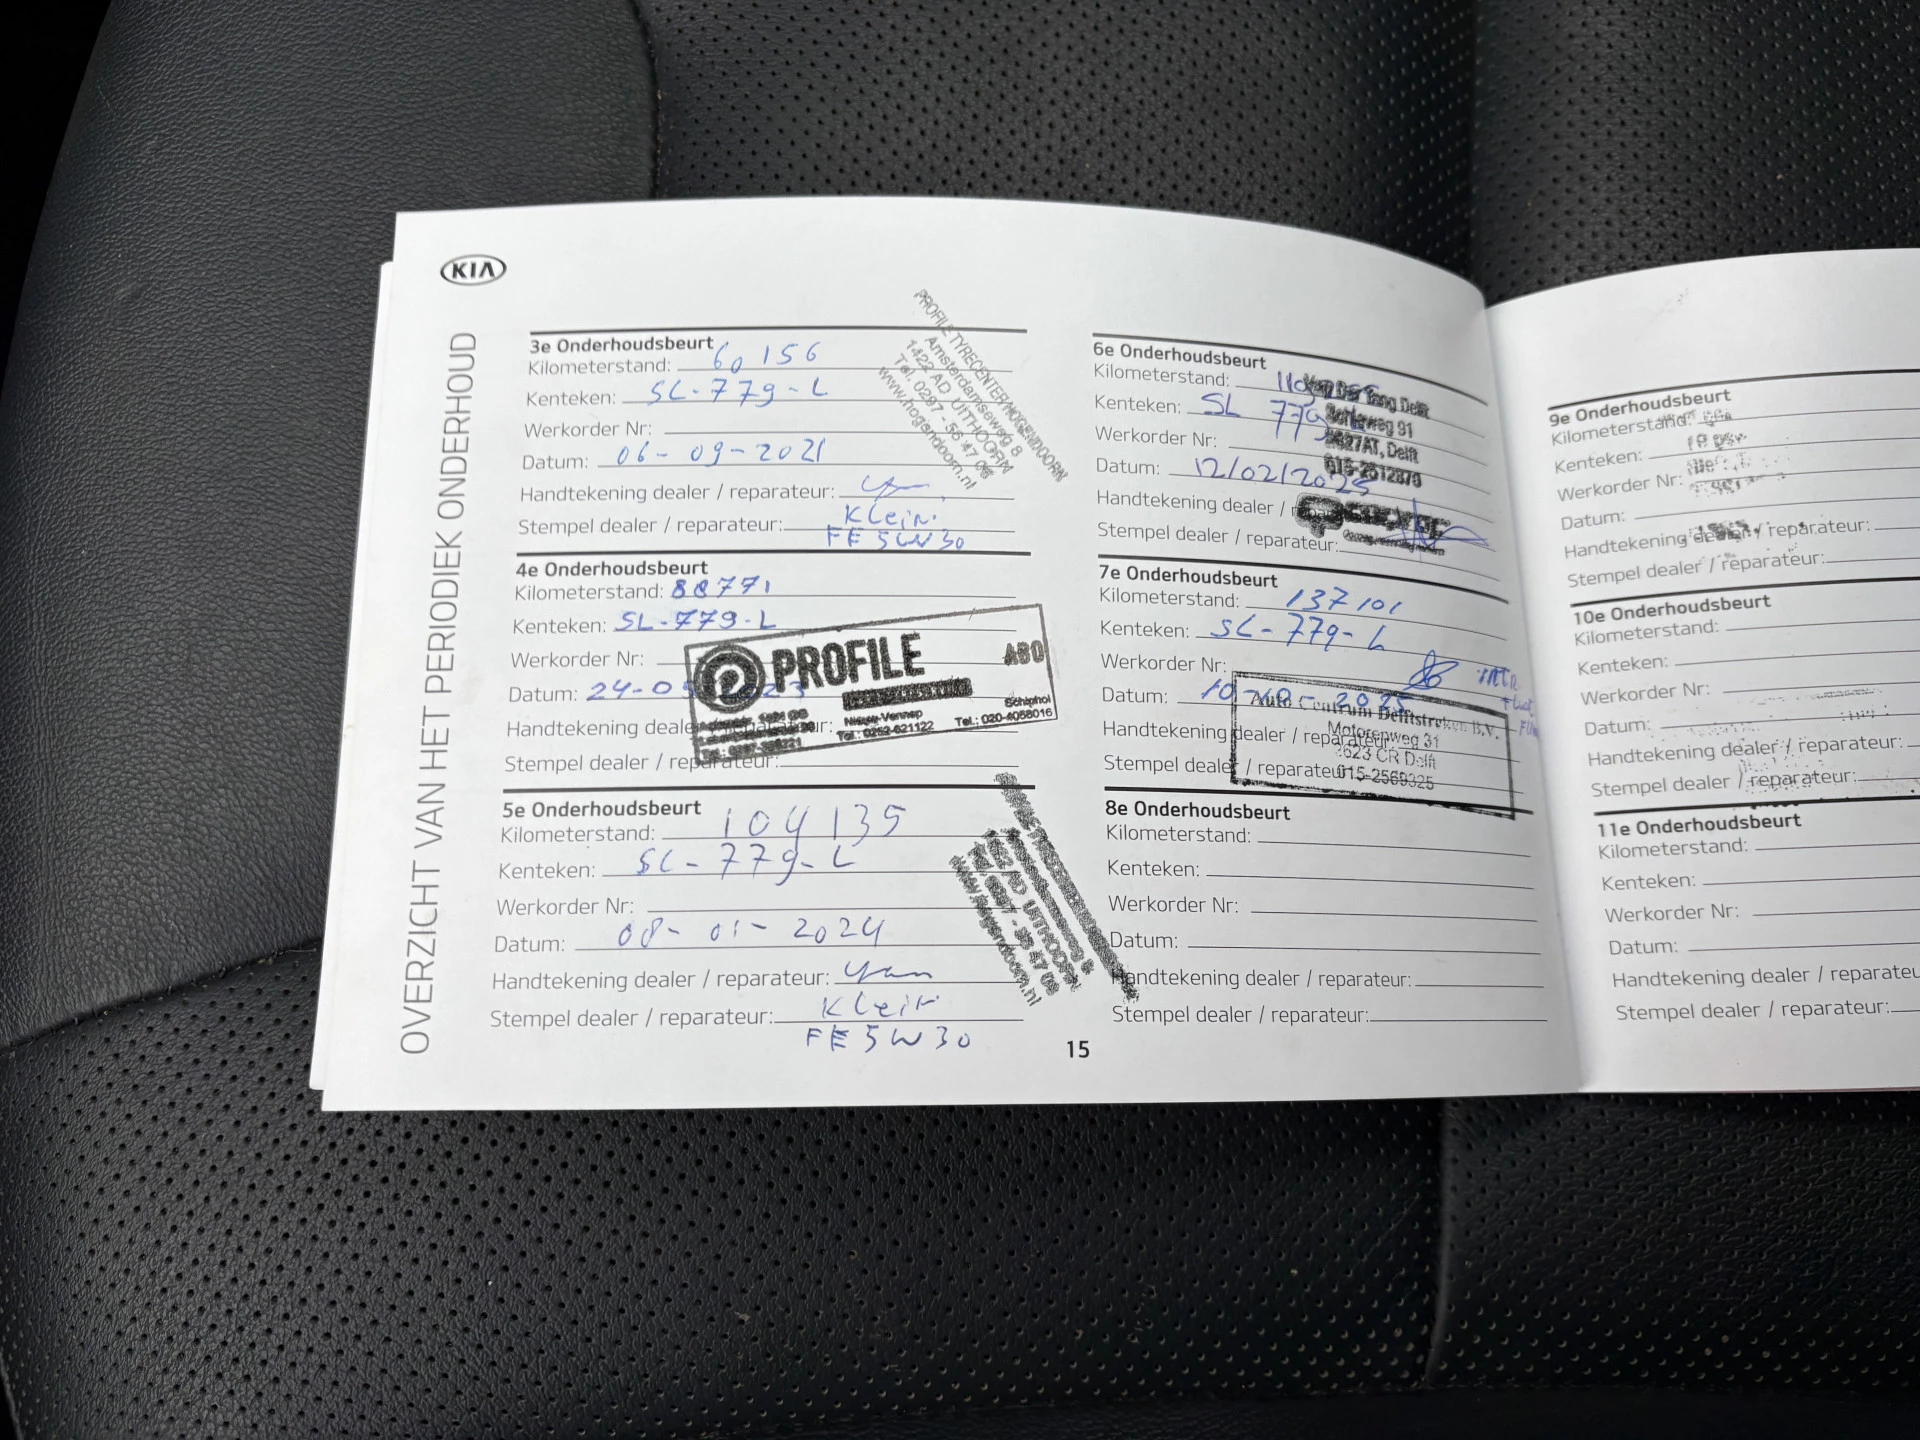 KIA
OVERZICHT VAN HET PERIODIEK ONDERHOUD
3e Onderhoudsbeurt
Kilometerstand: 60 156
Kenteken: SL-779-L
Werkorder Nr:
Datum: 06-09-2021
Handtekening dealer / reparateur:
Stempel dealer / reparateur: Klein
FE 5W30
PROFILE TYRECENTER HOGENDOORN
Amsterdamseweg 8
1422 AD UITHOORN
Tel. 0297 - 56 47 06
www.hogendoorn.nl
4e Onderhoudsbeurt
Kilometerstand: 88771
Kenteken: SL-779-L
Werkorder Nr:
Datum: 24-0
Handtekening dealer / reparateur:
Stempel dealer / reparateur:
PROFILE
Nieuw-Vennep
Tel.: 0252-621122
Schiphol
Tel.: 020-4058016
5e Onderhoudsbeurt
Kilometerstand: 104 135
Kenteken: SL-779-L
Werkorder Nr:
Datum: 08-01-2024
Handtekening dealer / reparateur:
Stempel dealer / reparateur: Klein
FE 5W30
UITHOORN
6e Onderhoudsbeurt
Kilometerstand:
Kenteken: SL 779
Werkorder Nr:
Datum: 12/02/2025
Handtekening dealer /
Stempel dealer / reparateur:
Van Der Tang Delft
Schieweg 91
2627AT, Delft
015-2612879
7e Onderhoudsbeurt
Kilometerstand: 137101
Kenteken: SL-779-L
Werkorder Nr:
Datum: 10-10-2025
Handtekening dealer / reparateur:
Stempel dealer / reparateur:
Auto Centrum Delftstreken B.V.
Motorenweg 31
2623 CR Delft
015-2569325
8e Onderhoudsbeurt
Kilometerstand:
Kenteken:
Werkorder Nr:
Datum:
Handtekening dealer / reparateur:
Stempel dealer / reparateur:
15
9e Onderhoudsbeurt
Kilometerstand:
Kenteken:
Werkorder Nr:
Datum:
Handtekening dealer / reparateur:
Stempel dealer / reparateur:
10e Onderhoudsbeurt
Kilometerstand:
Kenteken:
Werkorder Nr:
Datum:
Handtekening dealer / reparateur:
Stempel dealer / reparateur:
11e Onderhoudsbeurt
Kilometerstand:
Kenteken:
Werkorder Nr:
Datum:
Handtekening dealer / reparateu
Stempel dealer / reparateur: